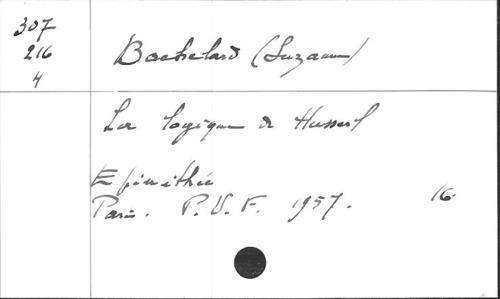 307
216
4
Bachelard (Suzanne)
La logique de Husserl
Epiméthée
Paris. P.U.F. 1957. 16.